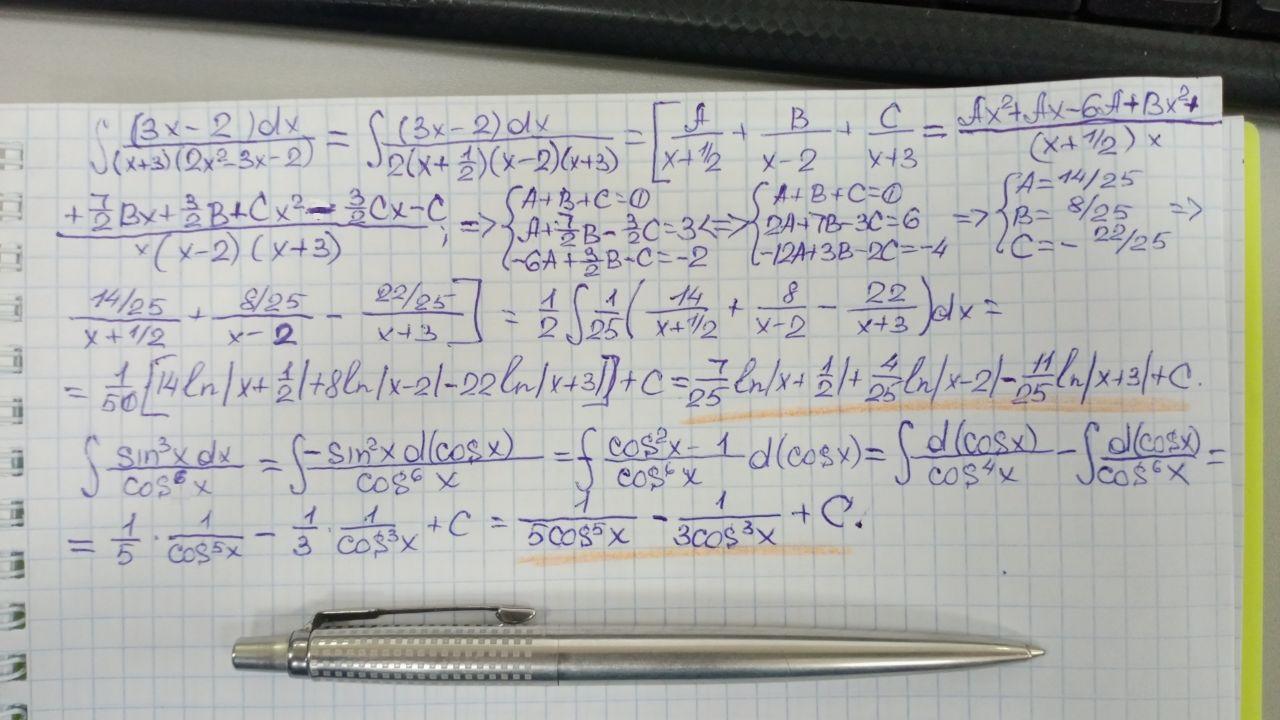 ∫ (3x-2)dx / (x+3)(2x²-3x-2) = ∫ (3x-2)dx / 2(x+1/2)(x-2)(x+3) = [ A/(x+1/2) + B/(x-2) + C/(x+3) = Ax²+Ax-6A+Bx²+ / (x+1/2) ×
+ 7/2 Bx + 3/2 B + Cx² - 3/2 Cx - C / ×(x-2)(x+3) ; => { A+B+C=0 ; A+7/2 B - 3/2 C = 3 ; -6A+3/2 B-C=-2 <=> { A+B+C=0 ; 2A+7B-3C=6 ; -12A+3B-2C=-4 => { A=14/25 ; B=8/25 ; C=-22/25 =>
14/25 / (x+1/2) + 8/25 / (x-2) - 22/25 / (x+3) ] = 1/2 ∫ 1/25 ( 14/(x+1/2) + 8/(x-2) - 22/(x+3) ) dx =
= 1/50 [14 ln|x+1/2| + 8 ln|x-2| - 22 ln|x+3|] + C = 7/25 ln|x+1/2| + 4/25 ln|x-2| - 11/25 ln|x+3| + C.
∫ sin³x dx / cos⁶x = ∫ -sin²x d(cosx) / cos⁶x = ∫ cos²x-1 / cos⁶x d(cosx) = ∫ d(cosx) / cos⁴x - ∫ d(cosx) / cos⁶x =
= 1/5 · 1/cos⁵x - 1/3 · 1/cos³x + C = 1/5cos⁵x - 1/3cos³x + C.